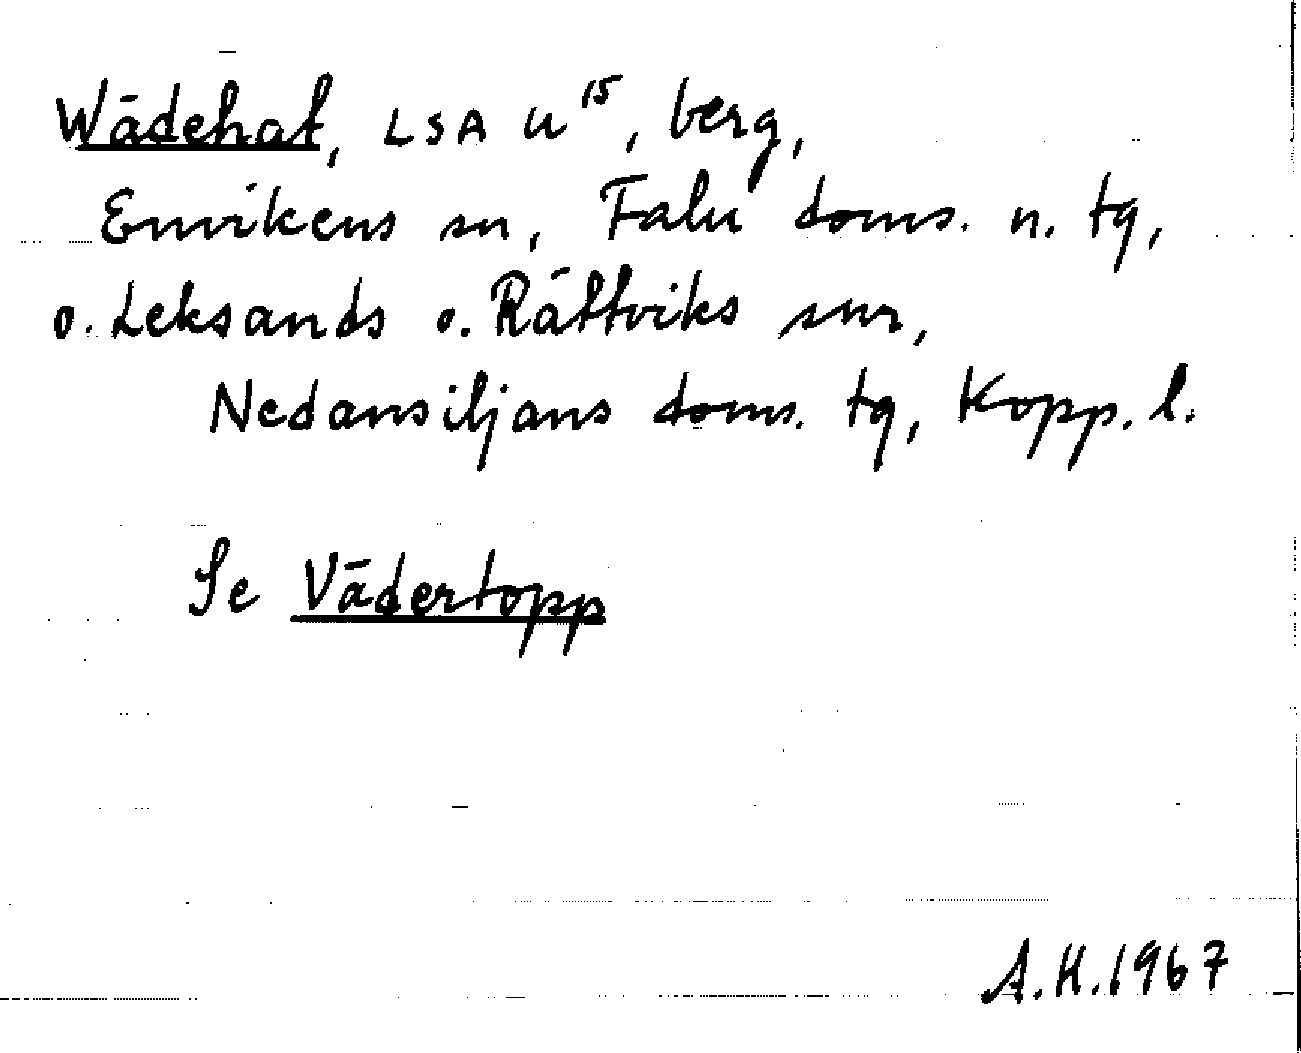 Wädehat, LSA U¹⁵, berg,
Envikens sn, Falu doms. n. tg,
o. Leksands o. Rättviks snr,
Nedansiljans doms. tg, Kopp. l.
Se Vädertopp
A.H.1967